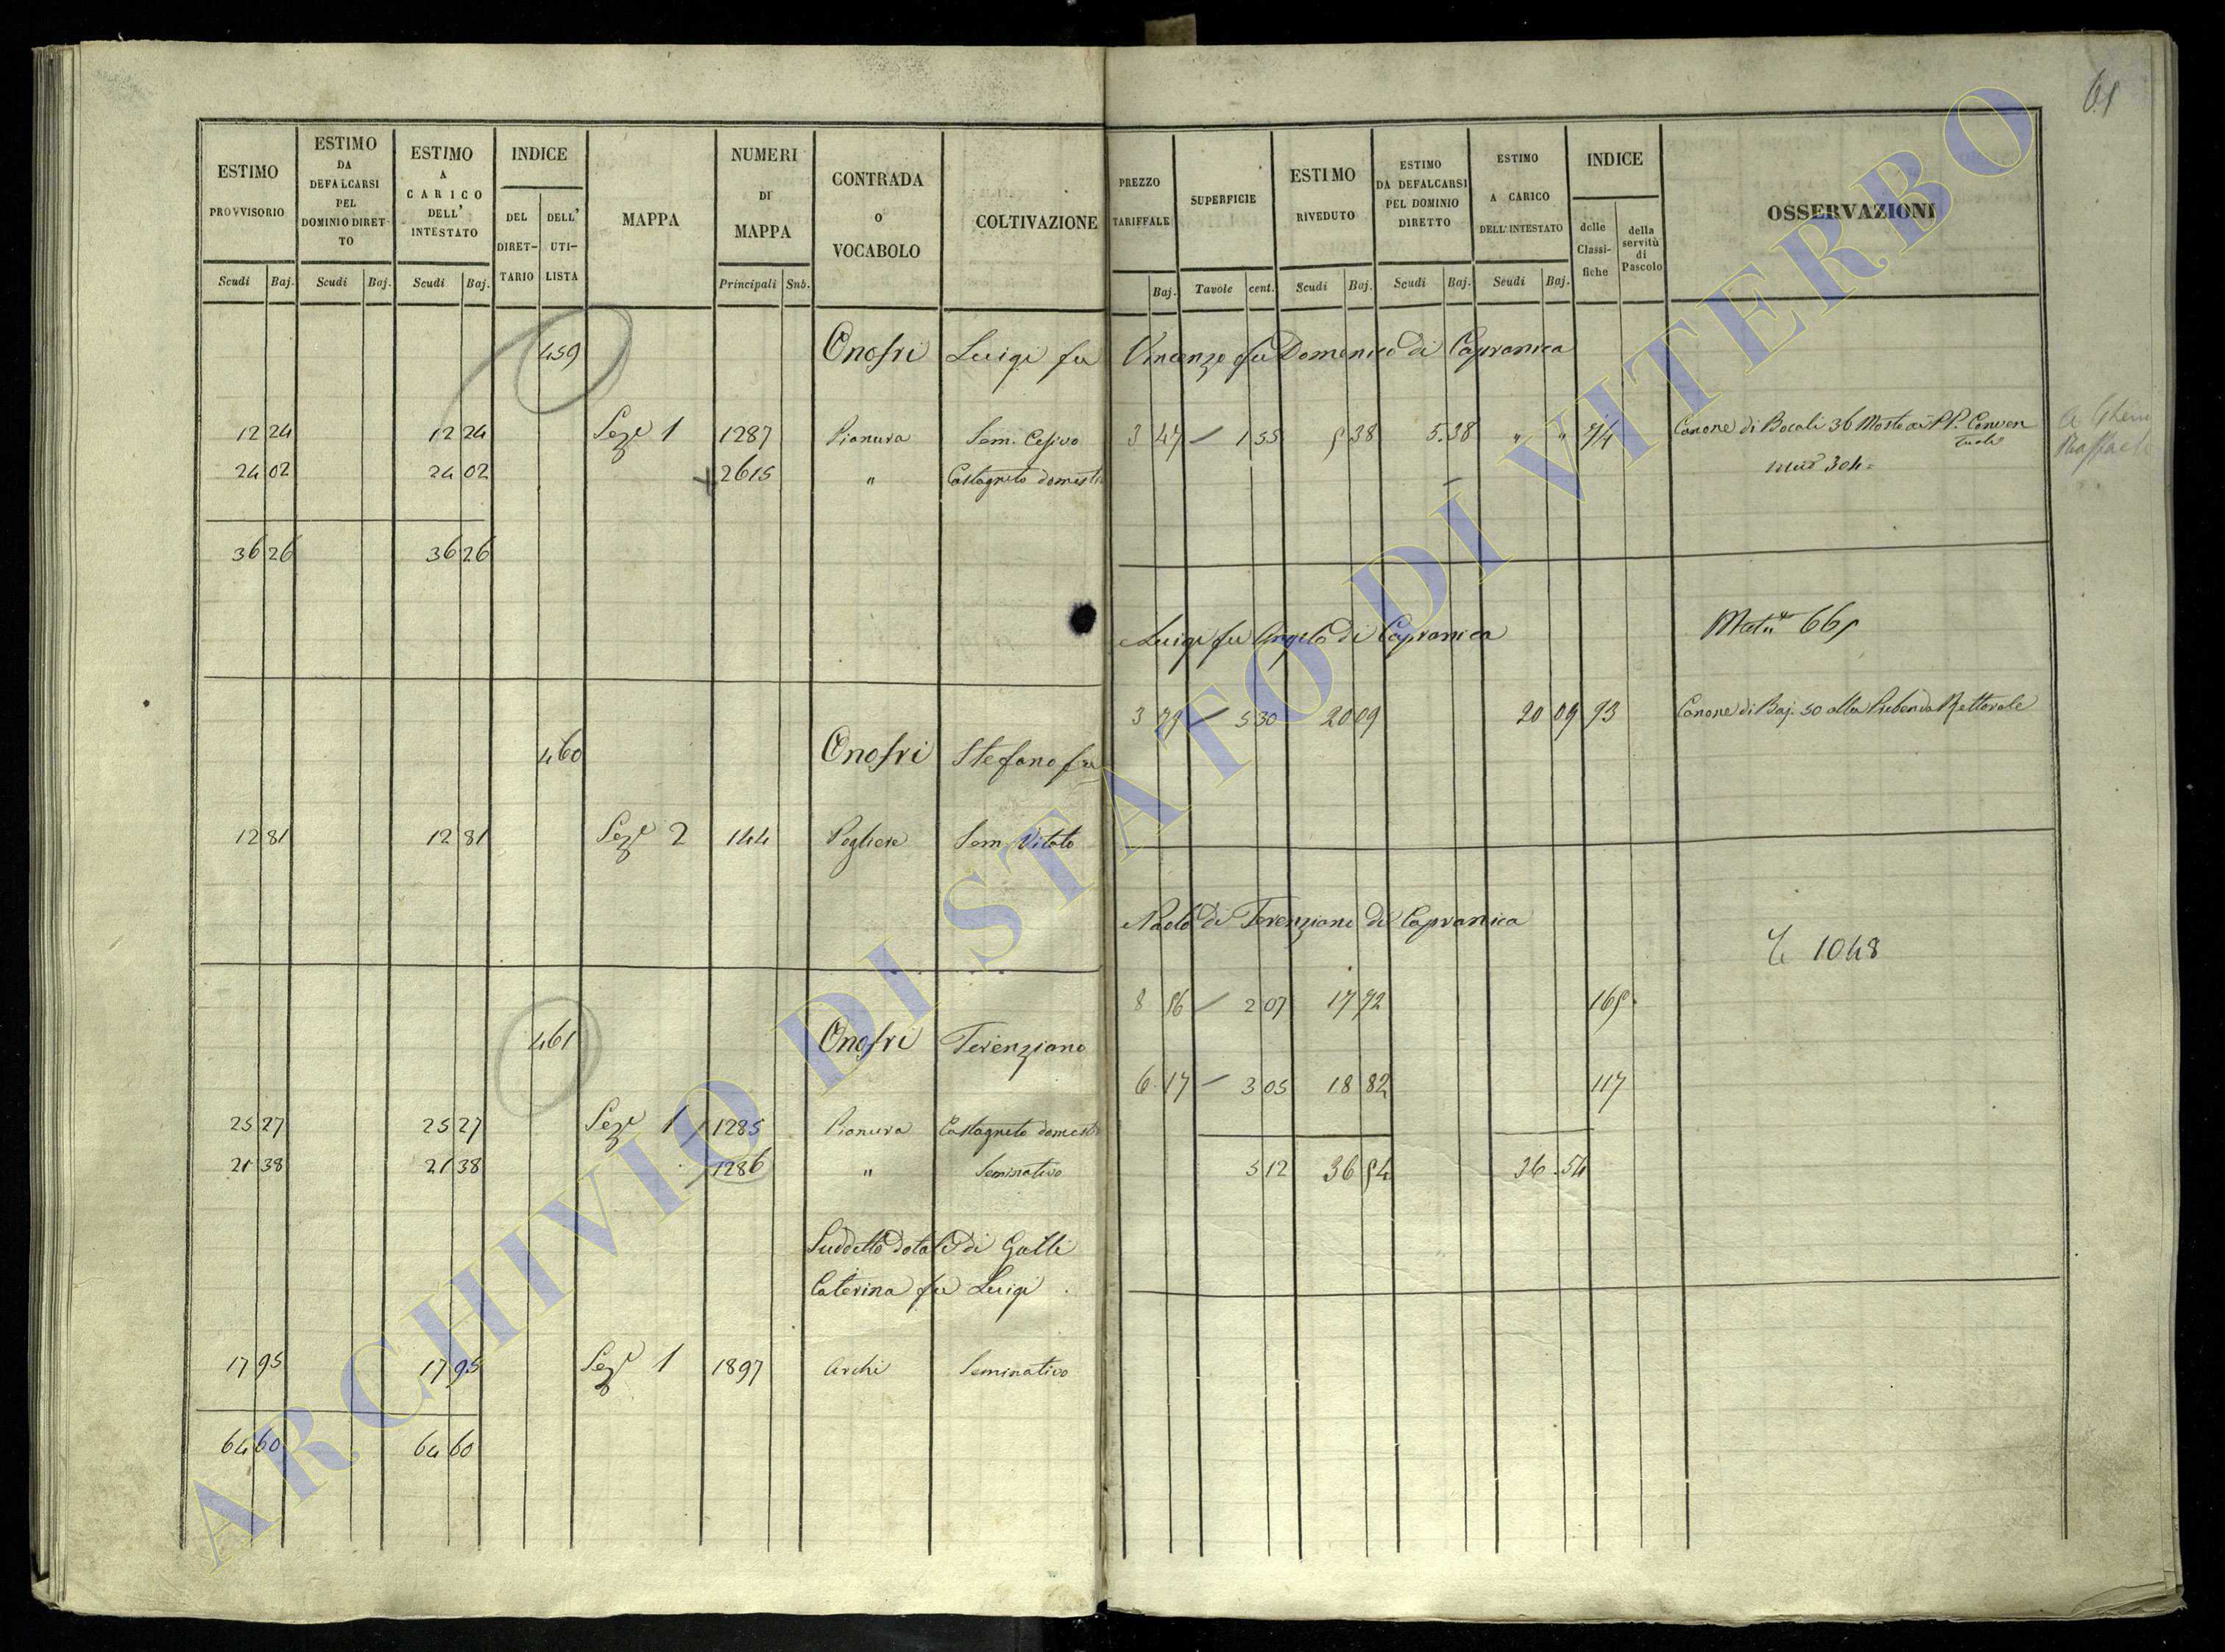 61
ESTIMO PROVVISORIO
ESTIMO DA DEFALCARSI PEL DOMINIO DIRETTO
ESTIMO A CARICO DELL' INTESTATO
INDICE
DEL DIRETTARIO
DELL' UTILISTA
MAPPA
NUMERI DI MAPPA
CONTRADA O VOCABOLO
COLTIVAZIONE
Scudi Baj. Scudi Baj. Scudi Baj. Principali Sub.
459 Onofri Luigi fu
12 24 12 24 Sez.e 1 1287 Pianura Sem. Cesivo
24 02 24 02 2615 " Castagneto domesti
36 26 36 26
460 Onofri Stefano fu
12 81 12 81 Sez.e 2 144 Pogliere Sem. Vitato
461 Onofri Terenziano
25 27 25 27 Sez.e 1 1285 Pianura Castagneto domesti
21 38 21 38 1286 " Seminativo
Suddetto dotale di Galli
Caterina fu Luigi
17 95 17 95 Sez.e 1 1897 Archi Seminativo
64 60 64 60
PREZZO TARIFFALE
SUPERFICIE
ESTIMO RIVEDUTO
ESTIMO DA DEFALCARSI PEL DOMINIO DIRETTO
ESTIMO A CARICO DELL' INTESTATO
INDICE
delle Classifiche
della servitù di Pascolo
OSSERVAZIONI
Baj. Tavole cent. Scudi Baj. Scudi Baj. Scudi Baj.
Vincenzo fu Domenico di Capranica
3 47 1 55 5 38 5.38 " " 74 Canone di Bocali 36 Mosto ai PP. Conven
tuali
304
Luigi fu Angelo di Capranica
3 79 5 30 20 09 20 09 93 Canone di Baj. 50 alla Prebenda Rettorale
Paolo di Terenziano di Capranica
1048
8 56 2 07 17 72 165
6.17 3 05 18 82 117
5 12 36 54 36.54
ARCHIVIO DI STATO DI VITERBO